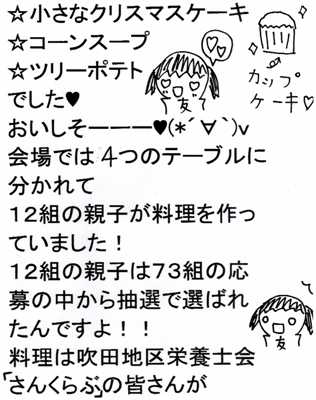 ☆小さなクリスマスケーキ
☆コーンスープ
☆ツリーポテト
でした♥
おいしそーーー♥(*´∀`)v
会場では4つのテーブルに
分かれて
１２組の親子が料理を作っ
ていました！
１２組の親子は７３組の応
募の中から抽選で選ばれ
たんですよ！！
料理は吹田地区栄養士会
「さんくらぶ」の皆さんが
カップ
ケーキ♡
友
友